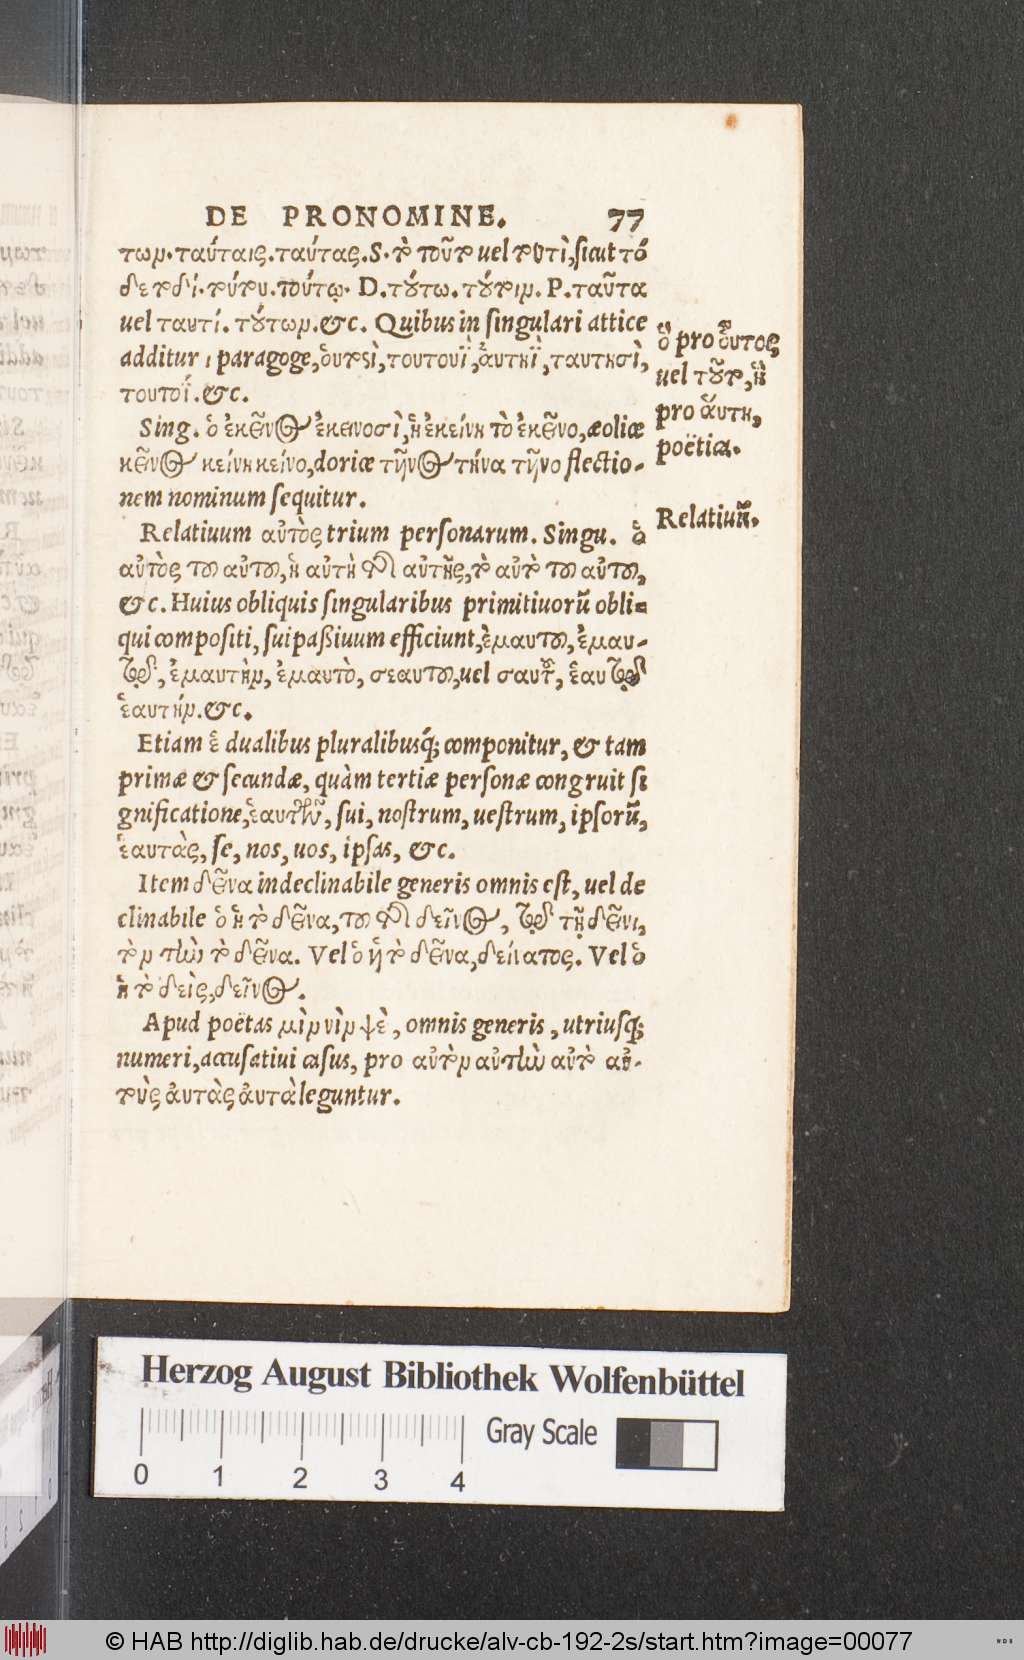 DE PRONOMINE. 77
των. ταύταις. ταύτας. S. τὸ τοῦτο uel τουτὶ, sicut τό
δε τοδί. τούτου. τούτῳ. D. τούτω. τούτοιν. P. ταῦτα
uel ταυτί. τούτων. &c. Quibus in singulari attice
additur ι paragoge, ὁυτοσὶ, τουτουῒ, ἁυτηῒ, ταυτησὶ,
τουτοΐ. &c.
Sing. ὁ ἐκεῖνος ἐκεινοσὶ, ἡ ἐκείνη τὸ ἐκεῖνο, æolicæ
κεῖνος κείνη κείνο, doricæ τῆνος τήνα τῆνο flectio-
nem nominum sequitur.
Relatiuum αὐτὸς trium personarum. Singu. ὁ
αὐτὸς τοῦ αὐτοῦ, ἡ αὐτὴ τῆς αὐτῆς, τὸ αὐτὸ τοῦ αὐτοῦ,
&c. Huius obliquis singularibus primitiuorũ obli-
qui compositi, sui paßiuum efficiunt, ἐμαυτοῦ, ἐμαυ-
τῷ, ἐμαυτὴν, ἐμαυτὸ, σεαυτοῦ, uel σαυτοῦ, ἑαυτῷ
ἑαυτήν. &c.
Etiam ἑ dualibus pluralibusq́; componitur, & tam
primæ & secundæ, quàm tertiæ personæ congruit si
gnificatione, ἑαυτῶν, sui, nostrum, uestrum, ipsorũ,
ἑαυτὰς, se, nos, uos, ipsas, &c.
Item δεῖνα indeclinabile generis omnis est, uel de
clinabile ὁ ἡ τὸ δεῖνα, τοῦ τῆς δεῖνος, τῷ τῇ δεῖνι,
τὸν τὼ τὸ δεῖνα. Vel ὁ ἡ τὸ δεῖνα, δείνατος. Vel ὁ
ἡ τὸ δεὶς, δεῖνος.
Apud poëtas μὶν νὶν ψὲ, omnis generis, utriusq́;
numeri, accusatiui casus, pro αὐτὸν αὐτὼ αὐτὸ αὐ-
τοὺς ἀυτὰς ἀυτὰ leguntur.
ὅ pro ὅυτος
uel τοῦτο, ἥ
pro ἅυτη,
poëtica.
Relatiuũ.
Herzog August Bibliothek Wolfenbüttel
Gray Scale
0 1 2 3 4
© HAB http://diglib.hab.de/drucke/alv-cb-192-2s/start.htm?image=00077